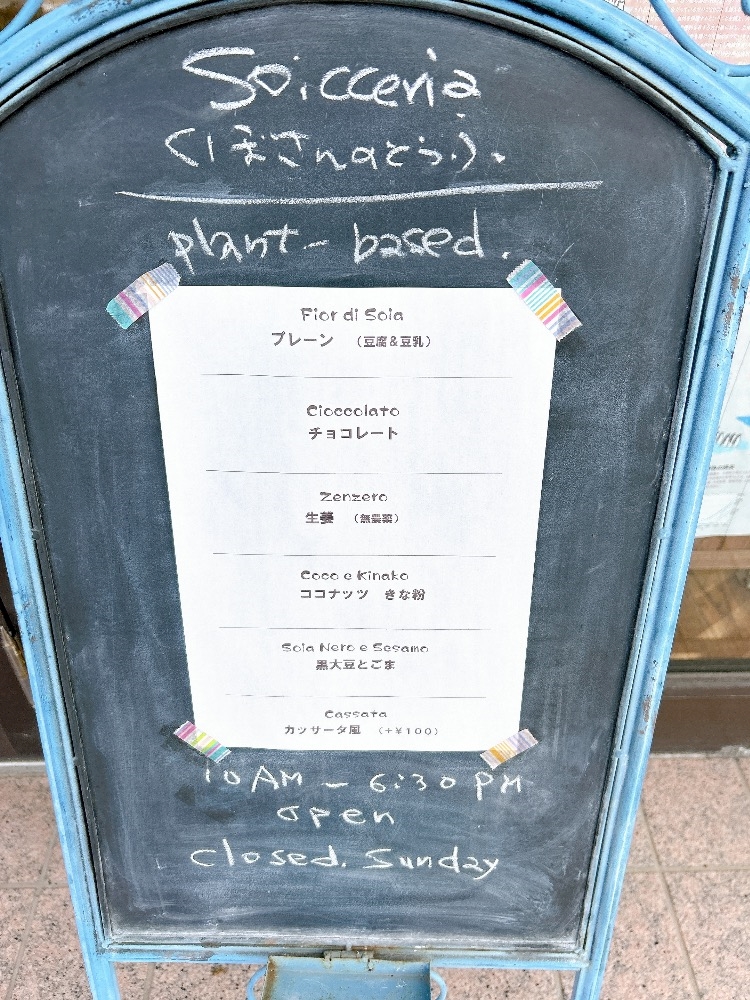 Soicceria
(くぼさんのとうふ).
plant-based.
Fior di Soia
プレーン （豆腐＆豆乳）
Cioccolato
チョコレート
Zenzero
生姜 （無農薬）
Coco e Kinako
ココナッツ きな粉
Soia Nero e Sesamo
黒大豆とごま
Cassata
カッサータ風 （+¥100）
10AM - 6:30 PM
open
closed. Sunday